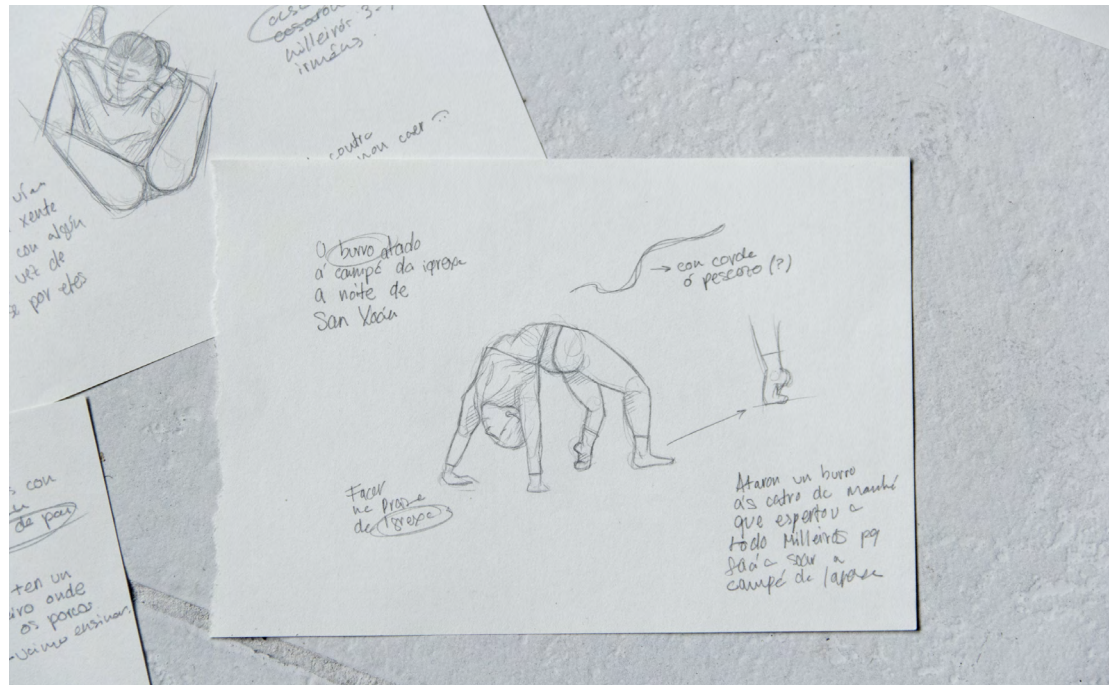 milleirós 3-
irmáns.
contra
caer
vían
xente
con algún
vez de
se por eles
O burro atado
á campá da igrexa
a noite de
San Xoán
→ con corda
ó pescozo (?)
Facer
na praza
da Igrexa
Ataron un burro
ás catro da mañá
que espertou a
todo Milleirós pq
facía soar a
campá da Igrexa
s con
de pau
ten un
eiro onde
os porcos
ensinar.